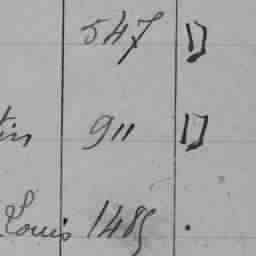 547 D
tin 911 D
Louis 1485 .